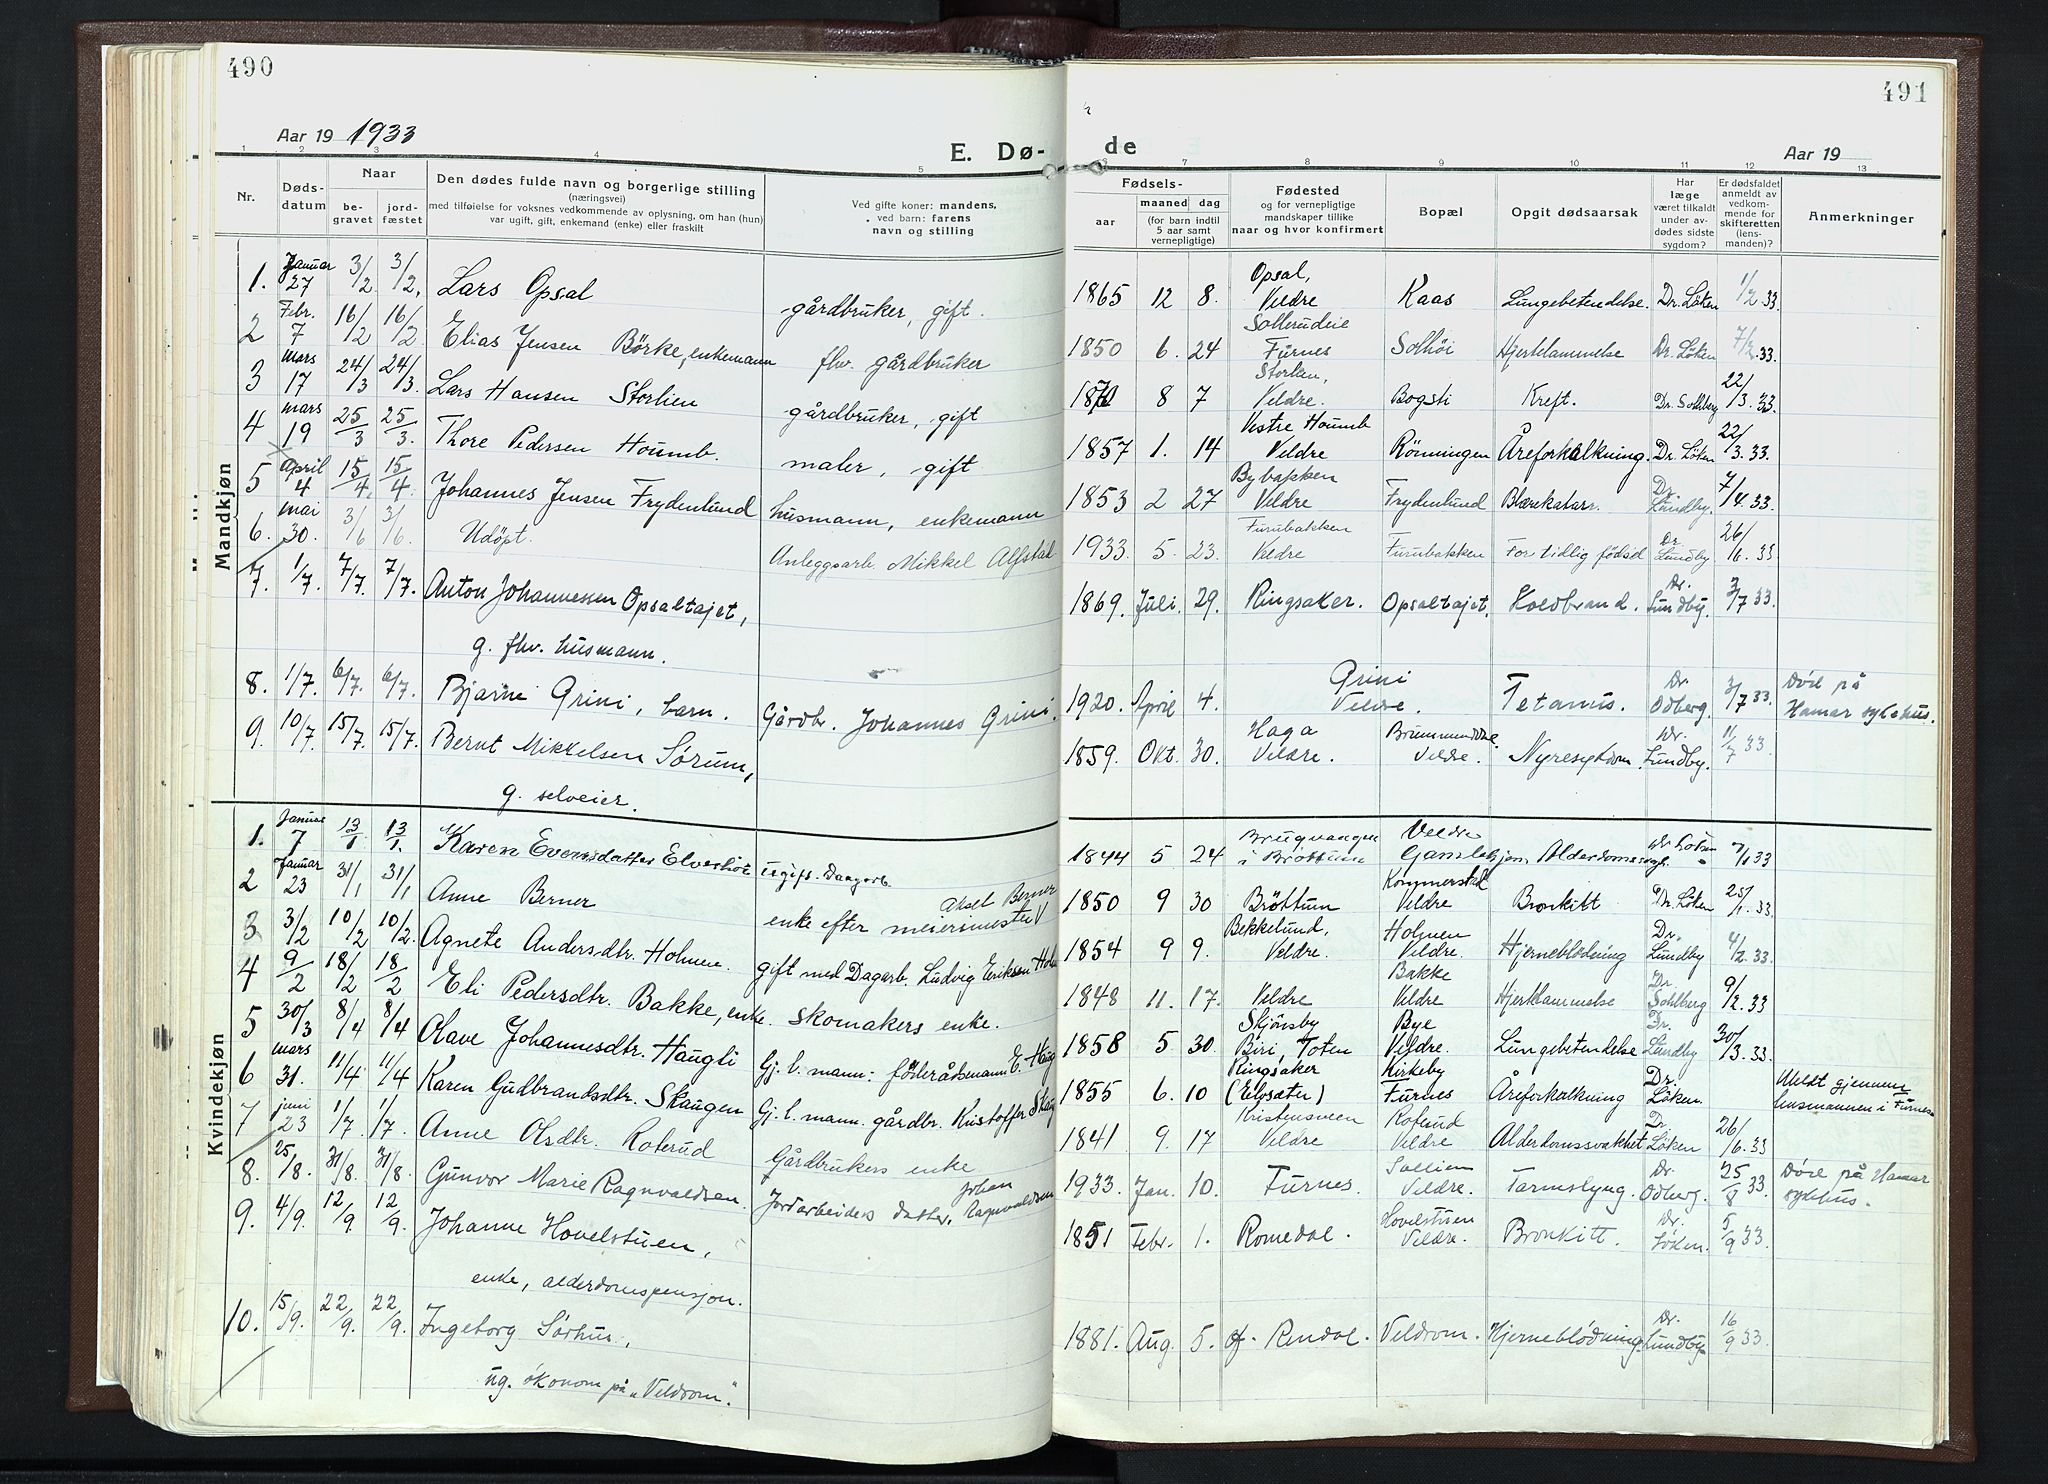 490
Aar 19 1933
E. Dø-
1 2 3 4 5
Nr.
Døds-
datum
Naar
be-
gravet
jord-
fæstet
Den dødes fulde navn og borgerlige stilling
(næringsvei)
med tilføielse for voksnes vedkommende av oplysning, om han (hun)
var ugift, gift, enkemand (enke) eller fraskilt
Ved gifte koner: mandens,
ved barn: farens
navn og stilling
Mandkjøn
1. Januar 27 3/2 3/2. Lars Opsal gårdbruker, gift.
2 Febr. 7 16/2 16/2 Elias Jensen Börke, enkemann fhv. gårdbruker
3 Mars 17 24/3 24/3. Lars Hansen Storlien gårdbruker, gift
4 mars 19 25/3 25/3. Thore Pedersen Houmb. maler, gift
5 April 4 15/4. 15/4 Johannes Jensen Frydenlund husmann, enkemann
6. mai 30. 3/6 3/6. Udöpt. Anleggsarb. Mikkel Alfstad
7. 1/7. 7/7. 7/7. Anton Johannessen Opsaltajet,
g. fhv. husmann.
8. 1/7. 6/7. 6/7. Bjarne Grini, barn. Gårdbr. Johannes Grini.
9. 10/7. 15/7. 15/7. Bernt Mikkelsen Sørum,
g. selveier.
Kvindekjøn
1. Januar 7 13/1. 13/1. Karen Evensdatter Elveshöi ugift. Dagarb.
2 Januar 23 31/1 31/1 Anne Berner enke efter meierimester Aksel Berner
3 3/2 10/2 10/2. Agnete Andersdtr. Holmen. gift med Dagarb. Ludvig Eriksen
4 9/2 18/2 18/2 Eli Pedersdtr. Bakke, enke. skomakers enke.
5 30/3 8/4 8/4 Olave Johannesdtr. Haugli Gj. l. mann: föderådsmann E. Haug
6 mars 31. 11/4 11/4 Karen Gudbrandsdtr. Skaugen Gj. l. mann. gårdbr. Kristoffer
7 juni 23 1/7 1/7. Anne Olsdtr. Roterud Gårdbrukers enke
8. 25/8. 31/8. 31/8. Gunvor Marie Ragnvaldsen. Jordarbeiders datter, Johan Ragnvaldsen
9. 4/9. 12/9. 12/9. Johanne Hovelstuen,
enke, alderdomspensjon.
10. 15/9. 22/9. 22/9. Ingeborg Sørhus,
ug. økonom på "Veldrom".
491
de
Aar 19
6 7 8 9 10 11 12 13
Fødsels-
aar
maaned dag
(for barn indtil
5 aar samt
vernepligtige)
Fødested
og for vernepligtige
mandskaper tillike
naar og hvor konfirmert
Bopæl
Opgit dødsaarsak
Har
læge
været tilkaldt
under av-
dødes sidste
sygdom?
Er dødsfaldet
anmeldt av
vedkom-
mende for
skifteretten
(lens-
manden)?
Anmerkninger
1865 12 8. Opsal, Veldre Kaas Lungebetendelse. Dr. Löken 1/2 33.
1850 6. 24 Sollerudeie Furnes Solhöi Hjertelammelse Dr. Löken 7/2. 33.
8 7 Storlien, Veldre. Bogsti Kreft. Dr. Sohlberg 22/3. 33.
1857 1. 14 Vestre Houmb Veldre Rönningen Åreforkalkning. Dr. Löken 22/3. 33.
1853 2 27 Bybakken Veldre Frydenlund Blærekatarr. Dr. Lundby. 7/4. 33.
1933. 5. 23. Furubakken Veldre Furubakken For tidlig födsel Dr. Lundby 26/6. 33
1869. Juli. 29. Ringsaker. Opsaltajet. Koldbrand. Dr. Lundby. 3/7 33.
1920. April 4. Grini Veldre. Tetanus. Dr. Odberg. 3/7 33. Död på
Hamar sykehus.
1859. Okt. 30. Haga Veldre. Brummunddal. Veldre. Nyresykdom. Dr. Lundby. 11/7 33.
1844 5 24 Brugvangen i Bröttum Veldre Gamlehjem Alderdomssvagh. Dr Löken 7/1 33
1850 9 30 Bröttum Kommerstad Veldre Bronkitt Dr. Löken 25/1. 33.
1854 9 9. Bekkelund, Veldre. Holmen Veldre. Hjerneblödning Dr. Lundby 4/2. 33.
1848 11. 17. Veldre Bakke Veldre Hjertelammelse Dr. Sohlberg 9/2. 33
1858 5. 30. Skjönsby Biri, Toten Bye Veldre. Lungebetendelse Dr. Lundby 30/3. 33.
1855 6. 10 Ringsaker (Elvsæter) Kirkeby Furnes Åreforkalkning Dr. Löken. Meldt gjennem
lensmannen i Furnes
1841 9. 17 Kristensveen Veldre Roterud Veldre Alderdomssvakhet Dr. Löken 26/6. 33
1933. Jan. 10. Furnes. Sollien Veldre. Tarmslyng. Dr. Odberg. 25/8 33. Död på Hamar
sykehus.
1851 Febr. 1. Romedal. Hovelstuen Veldre. Bronkitt. Dr. Löken. 5/9 33.
1881. Aug. 5. Rendal. Veldrom. Hjerneblödning. Dr. Lundby. 16/9 33.